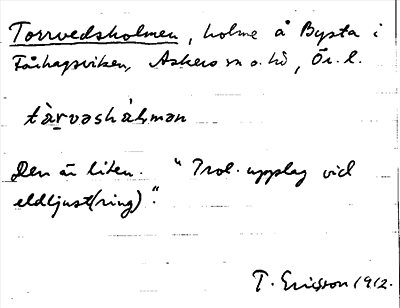 Torrvedsholmen, holme å Bysta i
Fårhagsviken, Askers sn o. hd, Ör. l.
tàrvəshål̥mən
Den är liten. "Trol. upplag vid
eldljust(ring)".
T. Ericsson 1912.